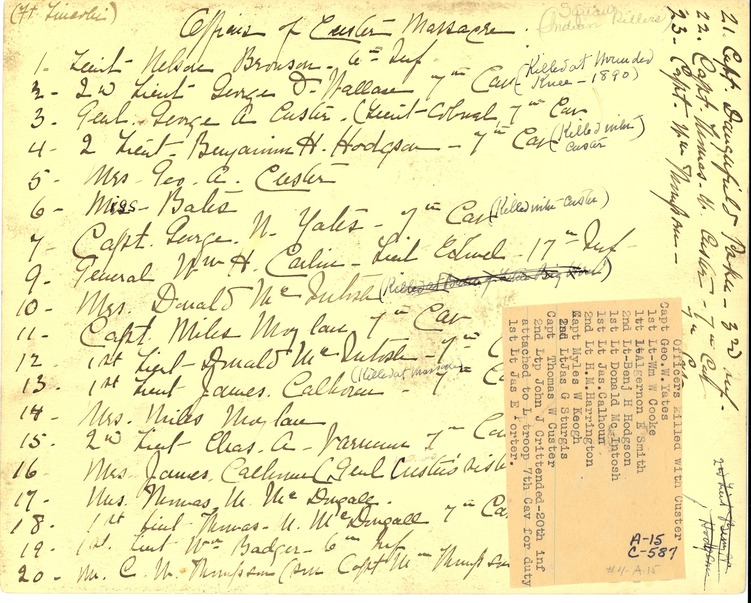 (Ft Lincoln)
Officers of Custer Massacre.
Squaw
(Indian Killers)
1- Lieut- Nelson Bronson- 6th Inf
2- 2nd Lieut- George D. Wallace 7th Cav (Killed at Wounded Knee - 1890)
3- Genl. George A Custer. (Lieut-Colonel 7th Cav
4- 2 Lieut- Benjamin H. Hodgson - 7th Cav (Killed with Custer)
5- Mrs- Geo. A. Custer
6- Miss- Bates
7- Capt. George. W. Yates- 7th Cav (Killed with-Custer)
9- General Wm H. Carlin- Lieut Colonel- 17th Inf
10- Mrs. Donald McIntosh
11- Capt. Miles Moylan 7th Cav
12 1st Lieut-Donald McIntosh- 7th C
13- 1st Lieut James. Calhoun (Killed at Massacre) 7th Ca
14- Mrs. Miles Moylan
15- 2nd Lieut Chas. A- Varnum 7th Cav
16 Mrs James. Calhoun (Genl Custer's sist
17- Mrs. Thomas M. McDougall-
18- 1st Lieut- Thomas- M. McDougall 7th Cav
19- 1st. Lieut Wm Badger- 6th Inf
20- Mr. C. W. Thompson (son Capt Wm Thompson
21. Capt. Dangerfield Parker- 3rd Inf-
22. Capt. Thomas- W. Custer- 7th Cav
23- Capt- Wm Thompson- 7th C
Officers killed with Custer
Capt Geo.W.Yates
1st Lt-Wm W Cooke
1st Lt Algernon E Smith
2nd Lt-Benj H Hodgson
1st Lt Donald McIntosh
1st Lt Jas.Calhoun
2nd Lt H.M.Harrington
Capt Myles W Keogh
2nd LtJas G Sturgis
Capt Thomas W Custer
2nd Ltp John J Crittended-20th inf
attached to L troop 7th Cav for duty
1st Lt Jas E Porter.
A-15
C-587
#4-A.15
2nd Lieut Benj. H
Hodgson